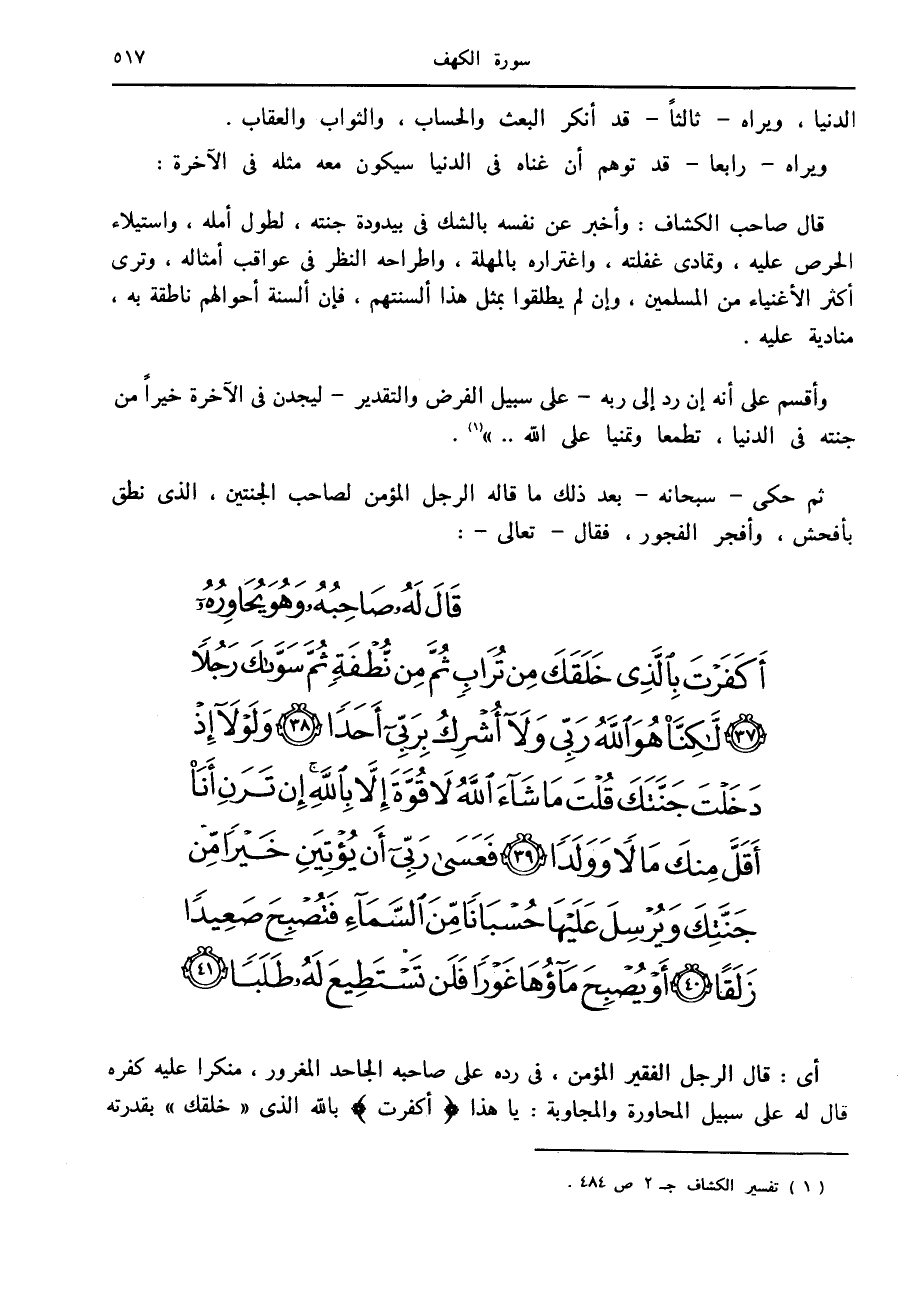 سورة الكهف ٥١٧
الدنيا ، ويراه – ثالثاً – قد أنكر البعث والحساب ، والثواب والعقاب .
ويراه – رابعا – قد توهم أن غناه فى الدنيا سيكون معه مثله فى الآخرة :
قال صاحب الكشاف : وأخبر عن نفسه بالشك فى بيدودة جنته ، لطول أمله ، واستيلاء
الحرص عليه ، وتمادى غفلته ، واغتراره بالمهلة ، واطراحه النظر فى عواقب أمثاله ، وترى
أكثر الأغنياء من المسلمين ، وإن لم يطلقوا بمثل هذا ألسنتهم ، فإن ألسنة أحوالهم ناطقة به ،
منادية عليه .
وأقسم على أنه إن رد إلى ربه – على سبيل الفرض والتقدير – ليجدن فى الآخرة خيراً من
جنته فى الدنيا ، تطمعا وتمنيا على الله .. »(١) .
ثم حكى – سبحانه – بعد ذلك ما قاله الرجل المؤمن لصاحب الجنتين ، الذى نطق
بأفحش ، وأفجر الفجور ، فقال – تعالى – :
قَالَ لَهُۥ صَاحِبُهُۥ وَهُوَ يُحَاوِرُهُۥٓ
أَكَفَرْتَ بِٱلَّذِى خَلَقَكَ مِن تُرَابٍ ثُمَّ مِن نُّطْفَةٍ ثُمَّ سَوَّىٰكَ رَجُلًا
﴿٣٧﴾ لَّٰكِنَّا۠ هُوَ ٱللَّهُ رَبِّى وَلَآ أُشْرِكُ بِرَبِّىٓ أَحَدًا ﴿٣٨﴾ وَلَوْلَآ إِذْ
دَخَلْتَ جَنَّتَكَ قُلْتَ مَا شَآءَ ٱللَّهُ لَا قُوَّةَ إِلَّا بِٱللَّهِ ۚ إِن تَرَنِ أَنَا۠
أَقَلَّ مِنكَ مَالًا وَوَلَدًا ﴿٣٩﴾ فَعَسَىٰ رَبِّىٓ أَن يُؤْتِيَنِ خَيْرًا مِّن
جَنَّتِكَ وَيُرْسِلَ عَلَيْهَا حُسْبَانًا مِّنَ ٱلسَّمَآءِ فَتُصْبِحَ صَعِيدًا
زَلَقًا ﴿٤٠﴾ أَوْ يُصْبِحَ مَآؤُهَا غَوْرًا فَلَن تَسْتَطِيعَ لَهُۥ طَلَبًا ﴿٤١﴾
أى : قال الرجل الفقير المؤمن ، فى رده على صاحبه الجاحد المغرور ، منكرا عليه كفره
قال له على سبيل المحاورة والمجاوبة : يا هذا ﴿ أكفرت ﴾ بالله الذى « خلقك » بقدرته
( ١ ) تفسير الكشاف جـ ٢ ص ٤٨٤ .